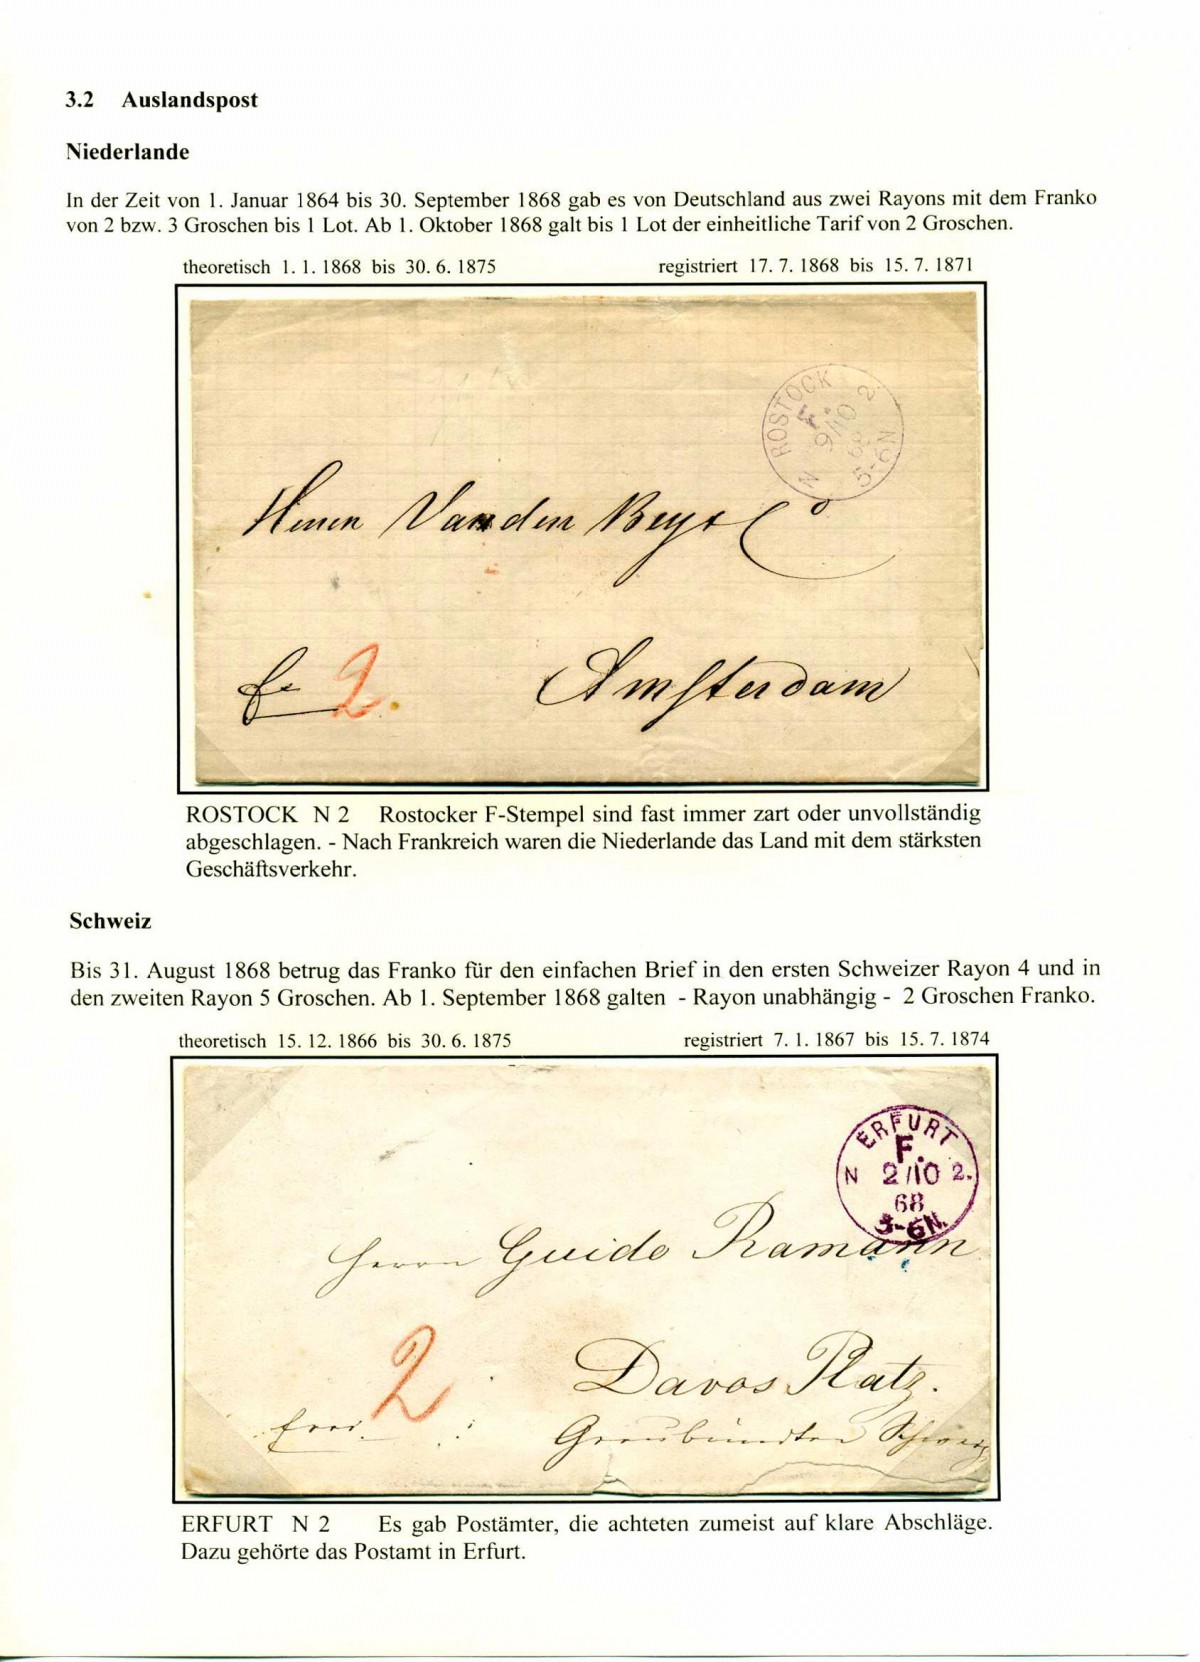 3.2 Auslandspost
Niederlande
In der Zeit von 1. Januar 1864 bis 30. September 1868 gab es von Deutschland aus zwei Rayons mit dem Franko
von 2 bzw. 3 Groschen bis 1 Lot. Ab 1. Oktober 1868 galt bis 1 Lot der einheitliche Tarif von 2 Groschen.
theoretisch 1. 1. 1868 bis 30. 6. 1875 registriert 17. 7. 1868 bis 15. 7. 1871
ROSTOCK
F.
9/10
68
N 2.
5-6N
Herren Van den Bergs Co
fr 2.
Amsterdam
ROSTOCK N 2 Rostocker F-Stempel sind fast immer zart oder unvollständig
abgeschlagen. - Nach Frankreich waren die Niederlande das Land mit dem stärksten
Geschäftsverkehr.
Schweiz
Bis 31. August 1868 betrug das Franko für den einfachen Brief in den ersten Schweizer Rayon 4 und in
den zweiten Rayon 5 Groschen. Ab 1. September 1868 galten - Rayon unabhängig - 2 Groschen Franko.
theoretisch 15. 12. 1866 bis 30. 6. 1875 registriert 7. 1. 1867 bis 15. 7. 1874
ERFURT
F.
N 2/10 2.
68
5-6N.
Herrn Guido Ramann
2
Davos Platz.
frei.
Graubündten Schweiz
ERFURT N 2 Es gab Postämter, die achteten zumeist auf klare Abschläge.
Dazu gehörte das Postamt in Erfurt.